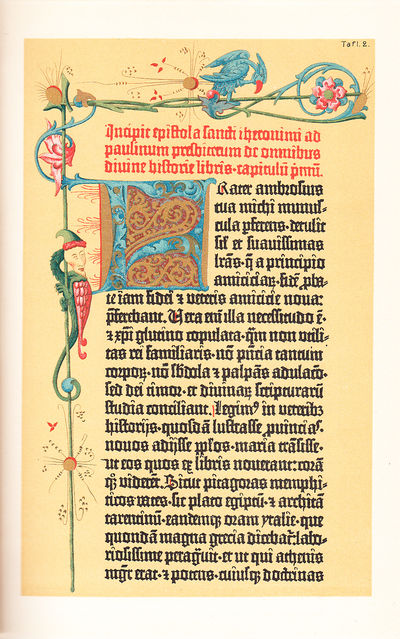 Tafl. 2.
Incipit epistola sancti iheronimi ad
paulinum presbiterum de omnibus
divine historie libris · capitulū p̄mū.
Frater ambrosius
tua michi munus-
cula ꝑferens · detulit
sil' et suavissimas
lr̄as · q̄ a principio
amiciciaꝝ · fidē ꝓba-
te iam fidei ⁊ veteris amicicie nova:
ꝓferebant. Vera eni illa necessitudo ē ·
⁊ xp̄i glutino copulata · qm̄ non utili-
tas rei familiaris · nō pn̄tia tantum
corporꝝ · nō sb̄dola ⁊ palpās adulacō ·
sed dei timor · et divinaꝝ scripturarū
studia conciliant. Legimꝰ in veteribꝫ
historijs · quosdā lustrasse ꝓvincias ·
novos adijsse pl̄os · maria trāsisse ·
ut eos quos ex libris noverant: corā
qꝫ viderēt. Sicut pitagoras memphi-
ticos vates · sic plato egiptū · ⁊ architā
tarentinū · eandemqꝫ oram ytalie · que
quondā magna grecia dicebat̄: labo-
riosissime peragvit · et ut qui athenis
mgr̄ erat · ⁊ potens · cuiusqꝫ doctrinas